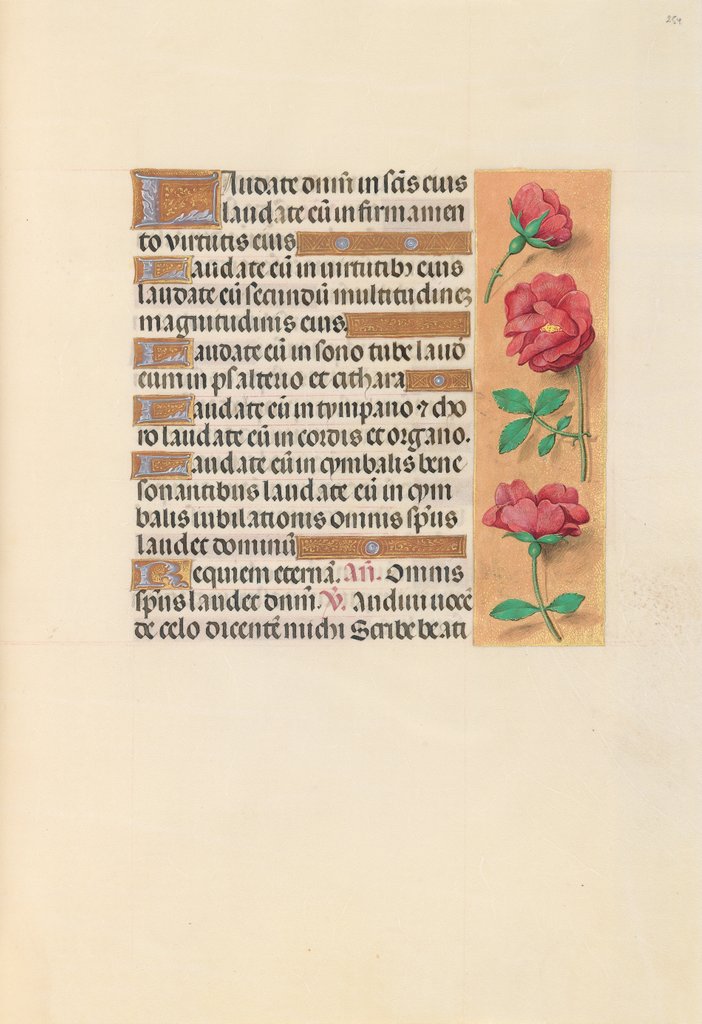 Laudate dnm̄ in scīs eius
laudate eū in firmamen
to virtutis eius
Laudate eū in virtutibȝ eius
laudate eū secundū multitudineȝ
magnitudinis eius.
Laudate eū in sono tube laud
eum in psalterio et cithara
Laudate eū in tympano ⁊ cho
ro laudate eū in cordis et organo.
Laudate eū in cymbalis bene
sonantibus laudate eū in cym
balis iubilationis omnis spūs
laudet dominū
Requiem eternā. Añ. Omnis
spūs laudet dnm̄. V̄. Audiui uocē
de celo dicentē michi Scribe beati